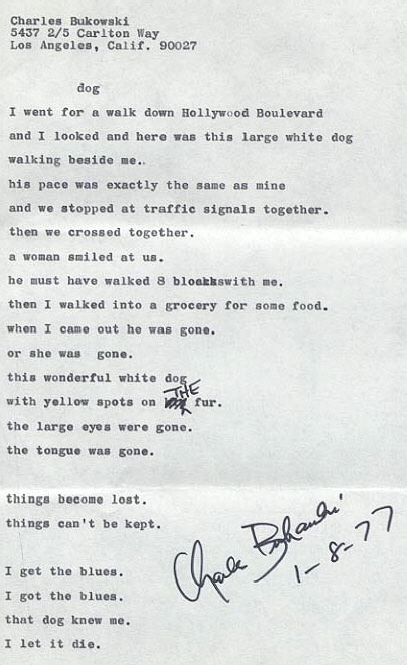 Charles Bukowski
5437 2/5 Carlton Way
Los Angeles, Calif. 90027
dog
I went for a walk down Hollywood Boulevard
and I looked and here was this large white dog
walking beside me..
his pace was exactly the same as mine
and we stopped at traffic signals together.
then we crossed together.
a woman smiled at us.
he must have walked 8 blocks with me.
then I walked into a grocery for some food.
when I came out he was gone.
or she was gone.
this wonderful white dog
with yellow spots on THE fur.
the large eyes were gone.
the tongue was gone.
things become lost.
things can't be kept.
I get the blues.
I got the blues.
that dog knew me.
I let it die.
Charles Bukowski
1-8-77